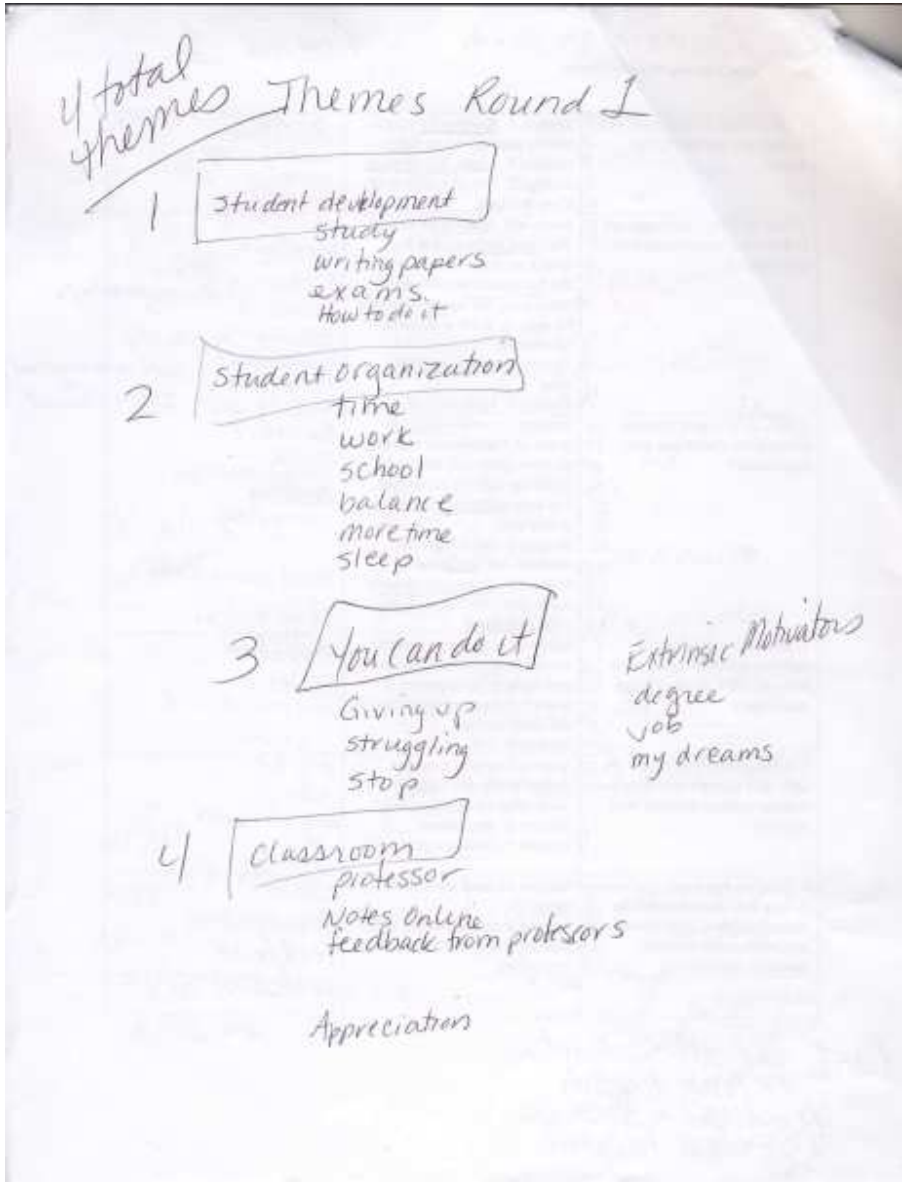 4 total
themes
Themes Round 1
1 Student development
study
writing papers
exams.
How to do it
2 Student Organization
time
work
school
balance
more time
sleep
3 You can do it
Giving up
struggling
stop
Extrinsic Motivators
degree
job
my dreams
4 Classroom
professor
Notes Online
feedback from professors
Appreciation